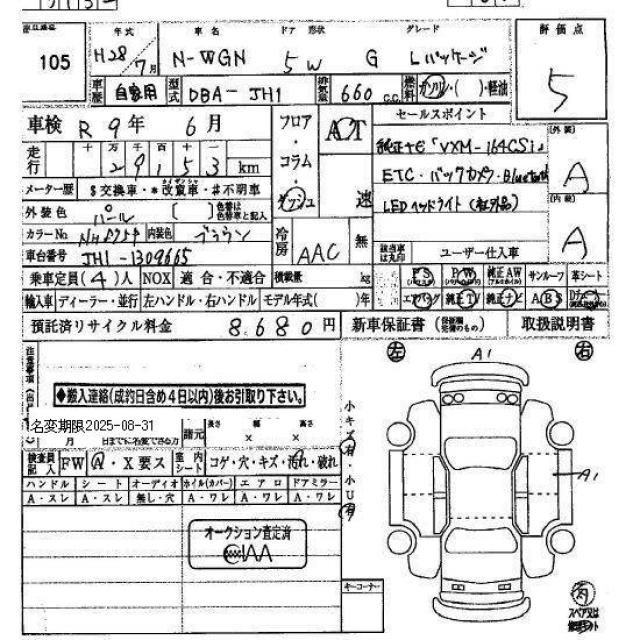 105
年式
H28 7月
車名
N-WGN
ドア 形状
5W
グレード
G Lパッケージ
評価点
5
車歴
自家用
型式
DBA-JH1
排気量
660 C.C.
燃料
ガソリン・( )・軽油
車検 R 9年 6月
フロア・コラム・ダッシュ
AT
速
セールスポイント
純正ナビ「VXM-164CSi」
ETC・バックカメラ・Bluetooth
LEDヘッドライト(社外品)
[外装]
A
[内装]
A
走行
十 万 千 百 十 一
29153 km
メーター歴 $交換車・*改竄車・#不明車
外装色 パール [ ] 色替は色替車と記入
カラーNo.
内装色 ブラウン
車台番号 JH1-1309665
冷房 AAC 無
該当車は丸印
ユーザー仕入車
乗車定員(4)人 NOX 適合・不適合 積載量 kg
PS PW 純正AW サンルーフ 革シート
輸入車 ディーラー・並行 左ハンドル・右ハンドル モデル年式( )年
エアバッグ 純正TV 純正ナビ ABS
預託済リサイクル料金 8,680円
新車保証書 取扱説明書
注意事項
◆搬入連絡(成約日含め4日以内)後お引取り下さい。
名変期限2025-08-31
月 日までに名変できる
諸元 長さ × 幅 × 高さ
小キズ有・小U有
左 A1 右
A1
検査員記入 FW A・X要ス
車内シート コゲ・穴・キズ・汚れ・破れ
ハンドル シート オーディオ ホイル(カバー) エアロ ドアミラー
A・スレ A・スレ 無し・穴 A・ワレ A・ワレ A・ワレ
オークション査定済
JAA
キーコーナー
スペア又は修理キット